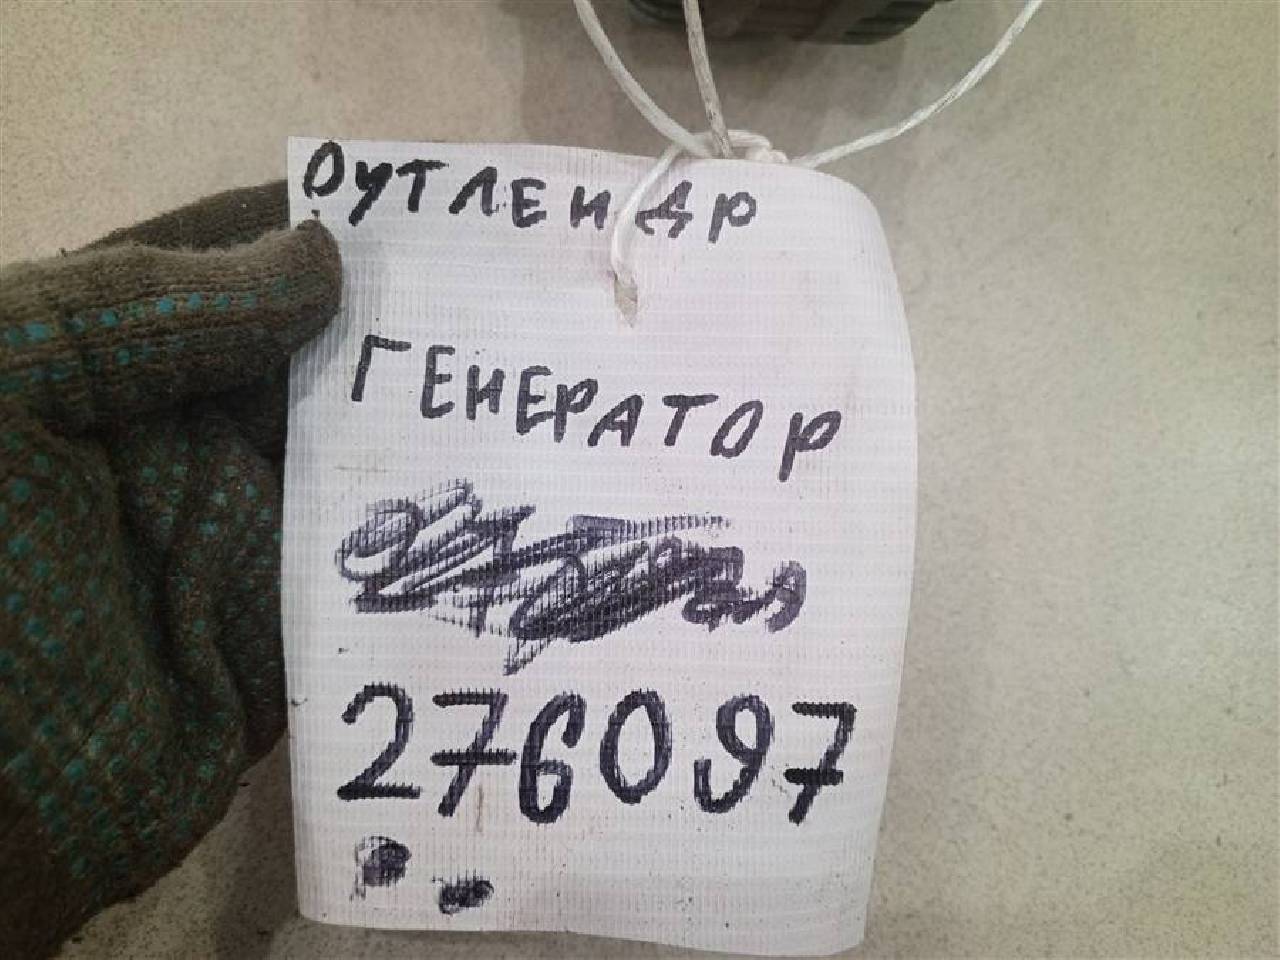 ОУТЛЕНДР
ГЕНЕРАТОР
276097